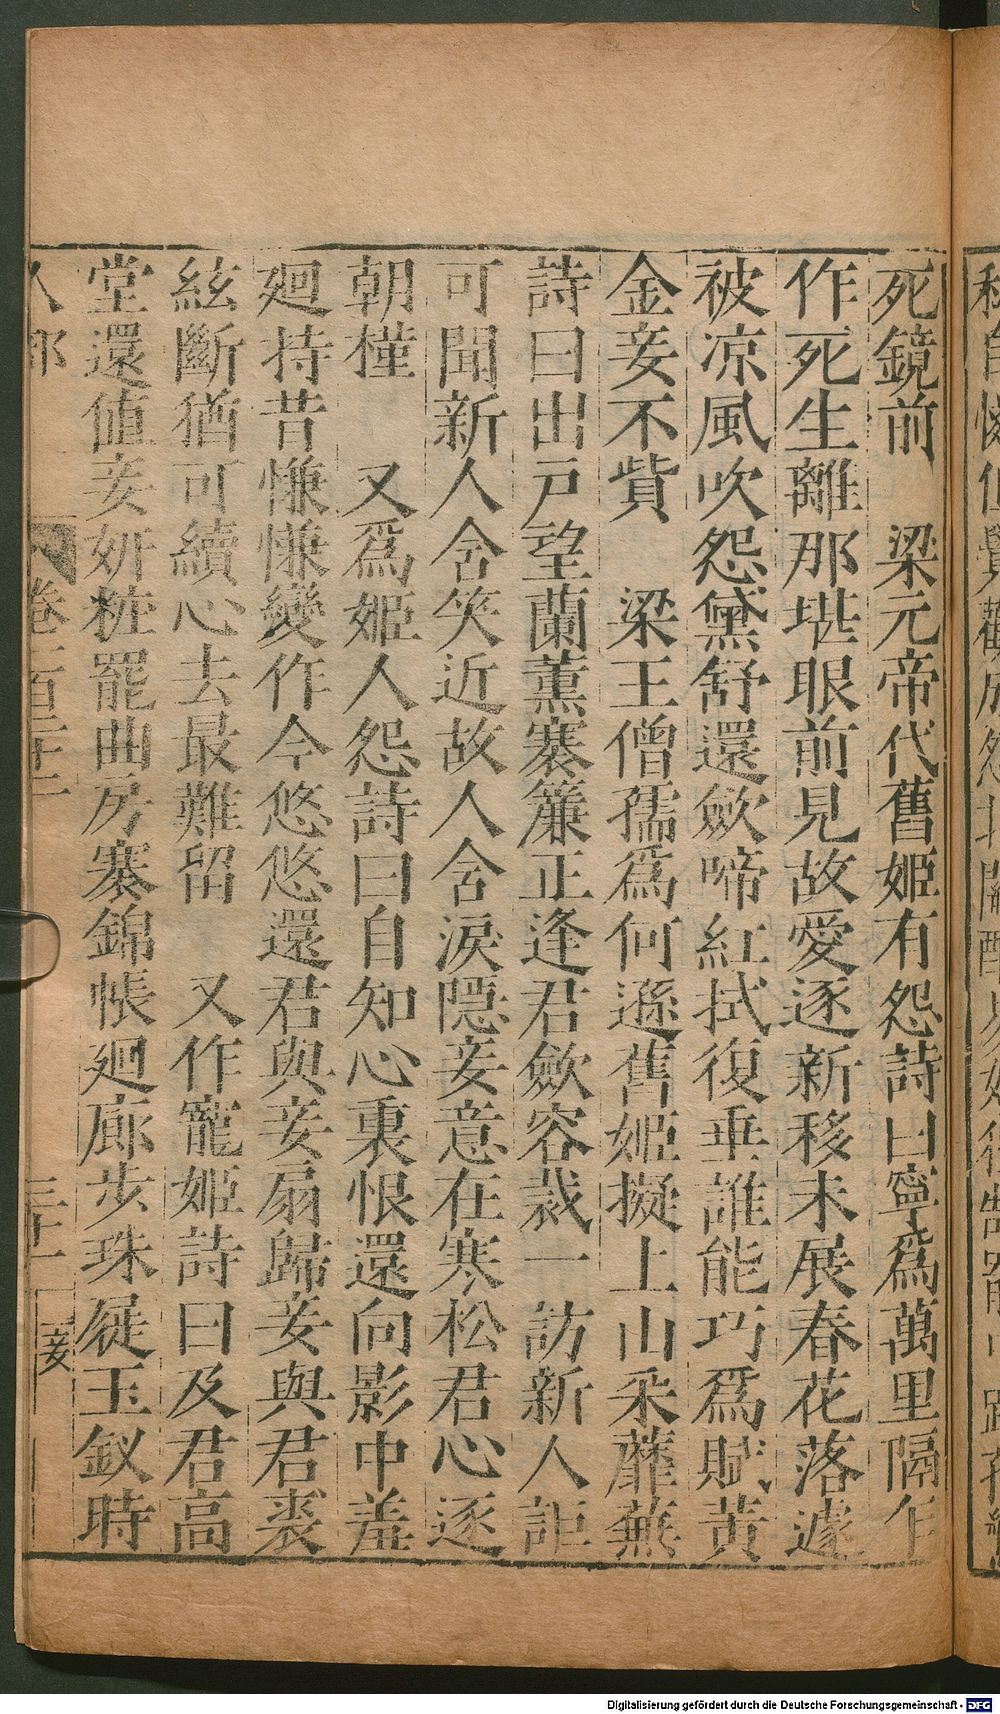 死鏡前　梁元帝代舊姬有怨詩曰寧爲萬里隔乍
作死生離那堪眼前見故愛逐新移未展春花落遽
被凉風吹怨黛舒還歛啼紅拭復垂誰能巧爲賦黄
金妾不貲　梁王僧孺爲何遜舊姬擬上山采蘼蕪
詩曰出戸望蘭薫褰簾正逢君歛容裁一訪新人詎
可聞新人含笑近故人含淚隠妾意在寒松君心逐
朝槿　又爲姬人怨詩曰自知心裏恨還向影中羞
廻持昔慊慊變作今悠悠還君與妾扇歸妾與君裘
絃斷猶可續心去最難留　又作寵姬詩曰及君高
堂還值妾妍粧罷曲房褰錦帳廻廊步珠屣玉釵時
人部　卷三百二十二　三十一　妾
Digitalisierung gefördert durch die Deutsche Forschungsgemeinschaft - DFG